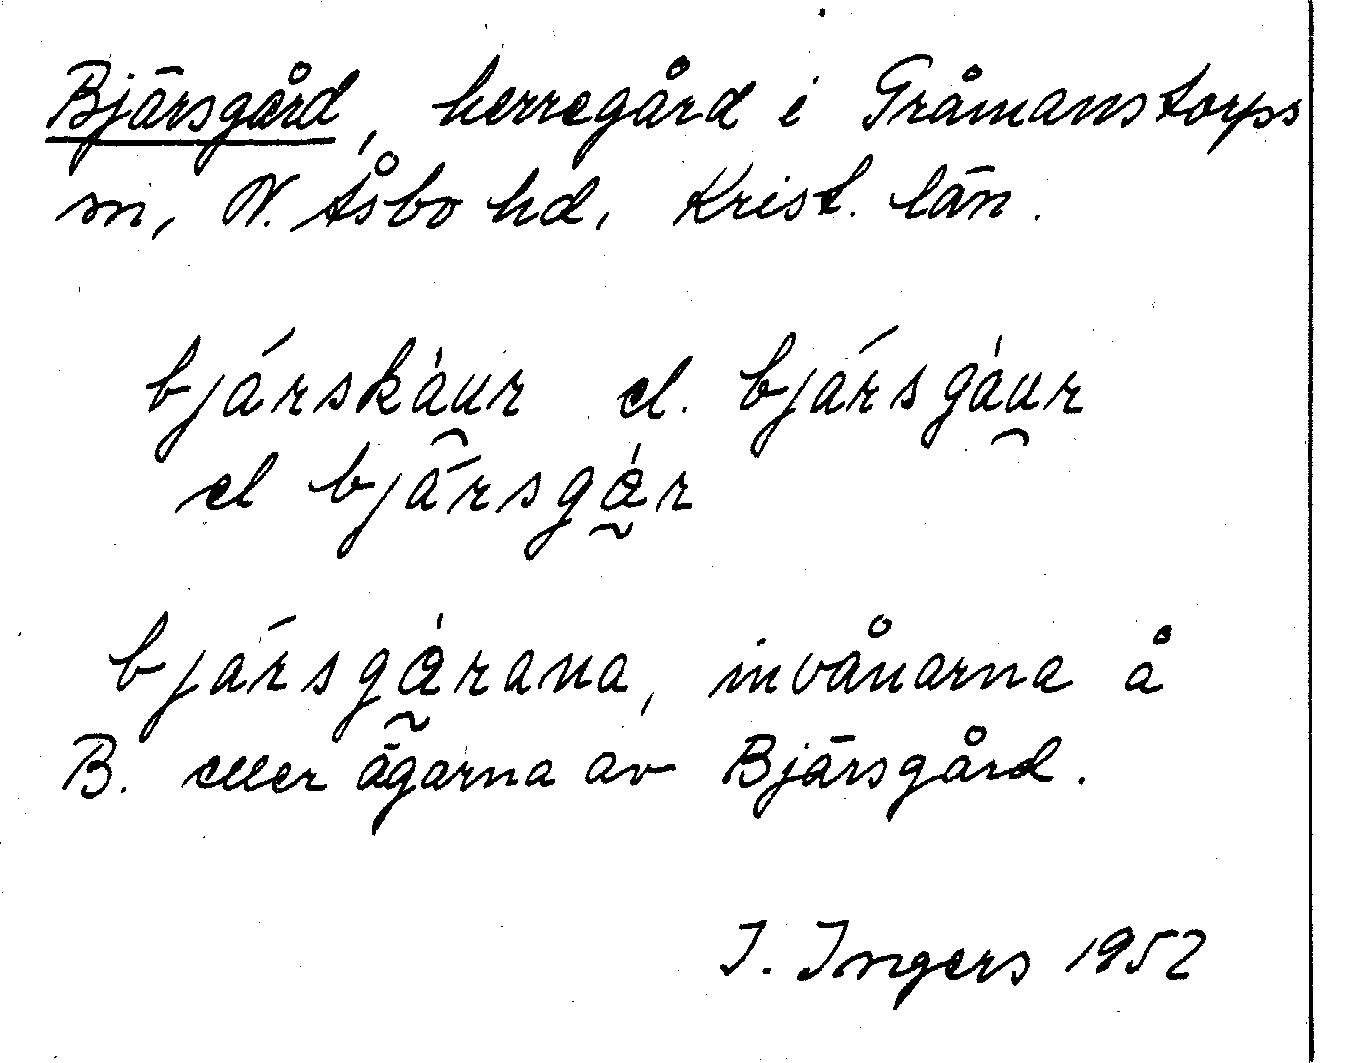 Bjärsgård, herregård i Gråmanstorps
sn, N. Åsbo hd, Krist. län.
bjárskàu̯r el. bjársgàu̯r
el bjársgà̰r
bjársgà̰rana, invånarna å
B. eller ägarna av Bjärsgård.
I. Ingers 1952